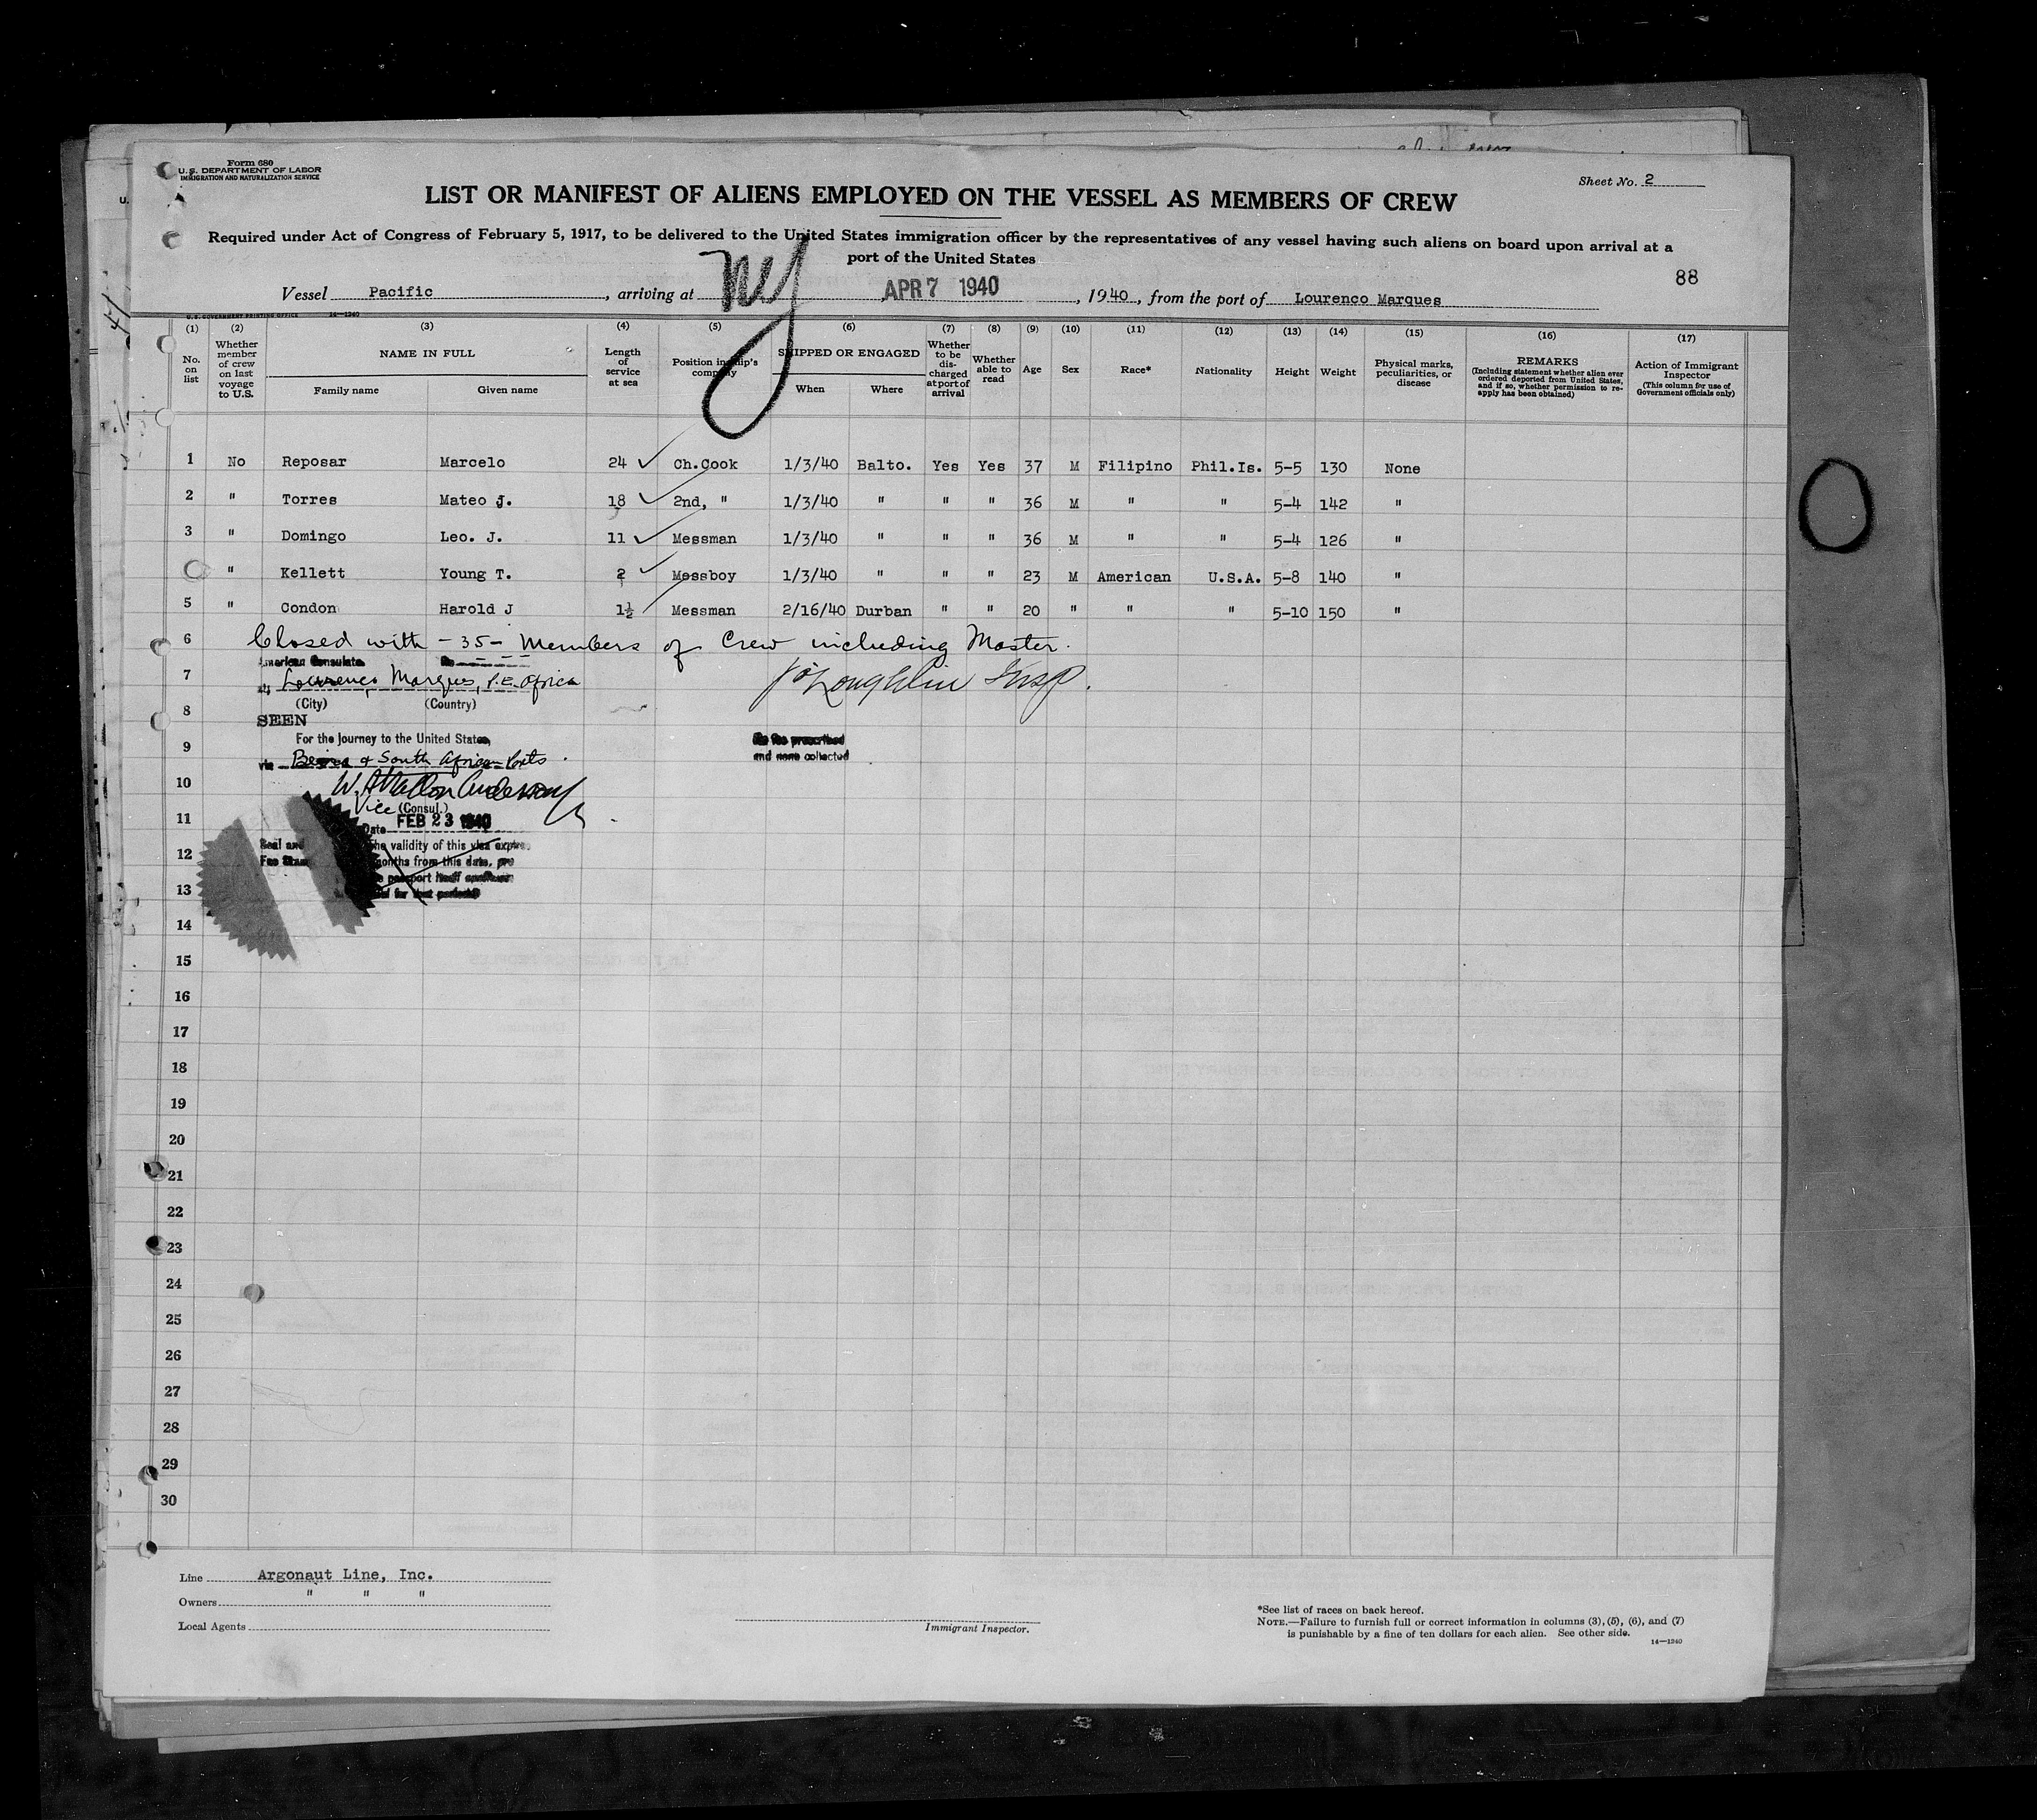 Form 680
U.S. DEPARTMENT OF LABOR
IMMIGRATION AND NATURALIZATION SERVICE
Sheet No. 2
LIST OR MANIFEST OF ALIENS EMPLOYED ON THE VESSEL AS MEMBERS OF CREW
Required under Act of Congress of February 5, 1917, to be delivered to the United States immigration officer by the representatives of any vessel having such aliens on board upon arrival at a
port of the United States
88
Vessel Pacific, arriving at NY APR 7 1940, 1940, from the port of Lourenco Marques
U.S. GOVERNMENT PRINTING OFFICE 14—1240
(1) (2) (3) (4) (5) (6) (7) (8) (9) (10) (11) (12) (13) (14) (15) (16) (17)
No. on list
Whether member of crew on last voyage to U.S.
NAME IN FULL
Family name Given name
Length of service at sea
Position in ship's company
SHIPPED OR ENGAGED
When Where
Whether to be discharged at port of arrival
Whether able to read
Age
Sex
Race*
Nationality
Height
Weight
Physical marks, peculiarities, or disease
REMARKS
(Including statement whether alien ever ordered deported from United States, and if so, whether permission to re-apply has been obtained)
Action of Immigrant Inspector
(This column for use of Government officials only)
1 No Reposar Marcelo 24 Ch.Cook 1/3/40 Balto. Yes Yes 37 M Filipino Phil.Is. 5-5 130 None
2 " Torres Mateo J. 18 2nd, " 1/3/40 " " " 36 M " " 5-4 142 "
3 " Domingo Leo. J. 11 Messman 1/3/40 " " " 36 M " " 5-4 126 "
" Kellett Young T. 2 Messboy 1/3/40 " " " 23 M American U.S.A. 5-8 140 "
5 " Condon Harold J 1½ Messman 2/16/40 Durban " " 20 " " " 5-10 150 "
6 Closed with - 35 - Members of Crew including Master.
American Consulate
7 at Lourenco Marques, P.E. Africa J O'Loughlin Insp.
(City) (Country)
8
SEEN
For the journey to the United States,
9 No fee prescribed
and none collected
via Beira & South African Ports.
10
Vice (Consul.)
11 Date FEB 23 1940
Seal and the validity of this visa expires
12 Fee Stamp months from this date, pro
passport itself continues
13 for that period
14
15
16
17
18
19
20
21
22
23
24
25
26
27
28
29
30
Line Argonaut Line, Inc.
Owners " " "
Local Agents
Immigrant Inspector.
*See list of races on back hereof.
NOTE.—Failure to furnish full or correct information in columns (3), (5), (6), and (7)
is punishable by a fine of ten dollars for each alien. See other side.
14—1240